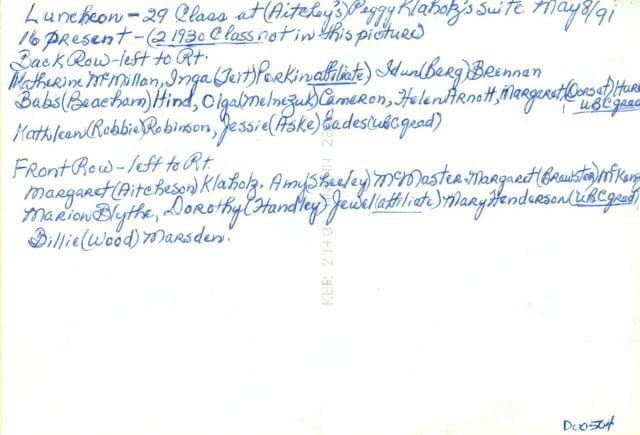 Luncheon - 29 Class at (Aitchey's) Peggy Klaholz's Suite May 8/91
16 present - (2 1930 Class not in this picture)
Back Row - left to Rt.
Katherine McMillan, Inga (Teit) Perkin affiliate) Idun (Berg) Brennan
Babs (Beacham) Hind, Olga (Melnezuk) Cameron, Helen Arnott, Margaret (Dorsat)
UBC grad
Kathleen (Robbie) Robinson, Jessie (Aske) Eades (UBC grad)
Front Row - left to Rt.
Margaret (Aitcheson) Klaholz. Amy (Sheeley) McMaster. Margaret (Brewster)
Marion Blythe, Dorothy (Handley) Jewel (affiliate) Mary Henderson (UBC grad)
Billie (Wood) Marsden.